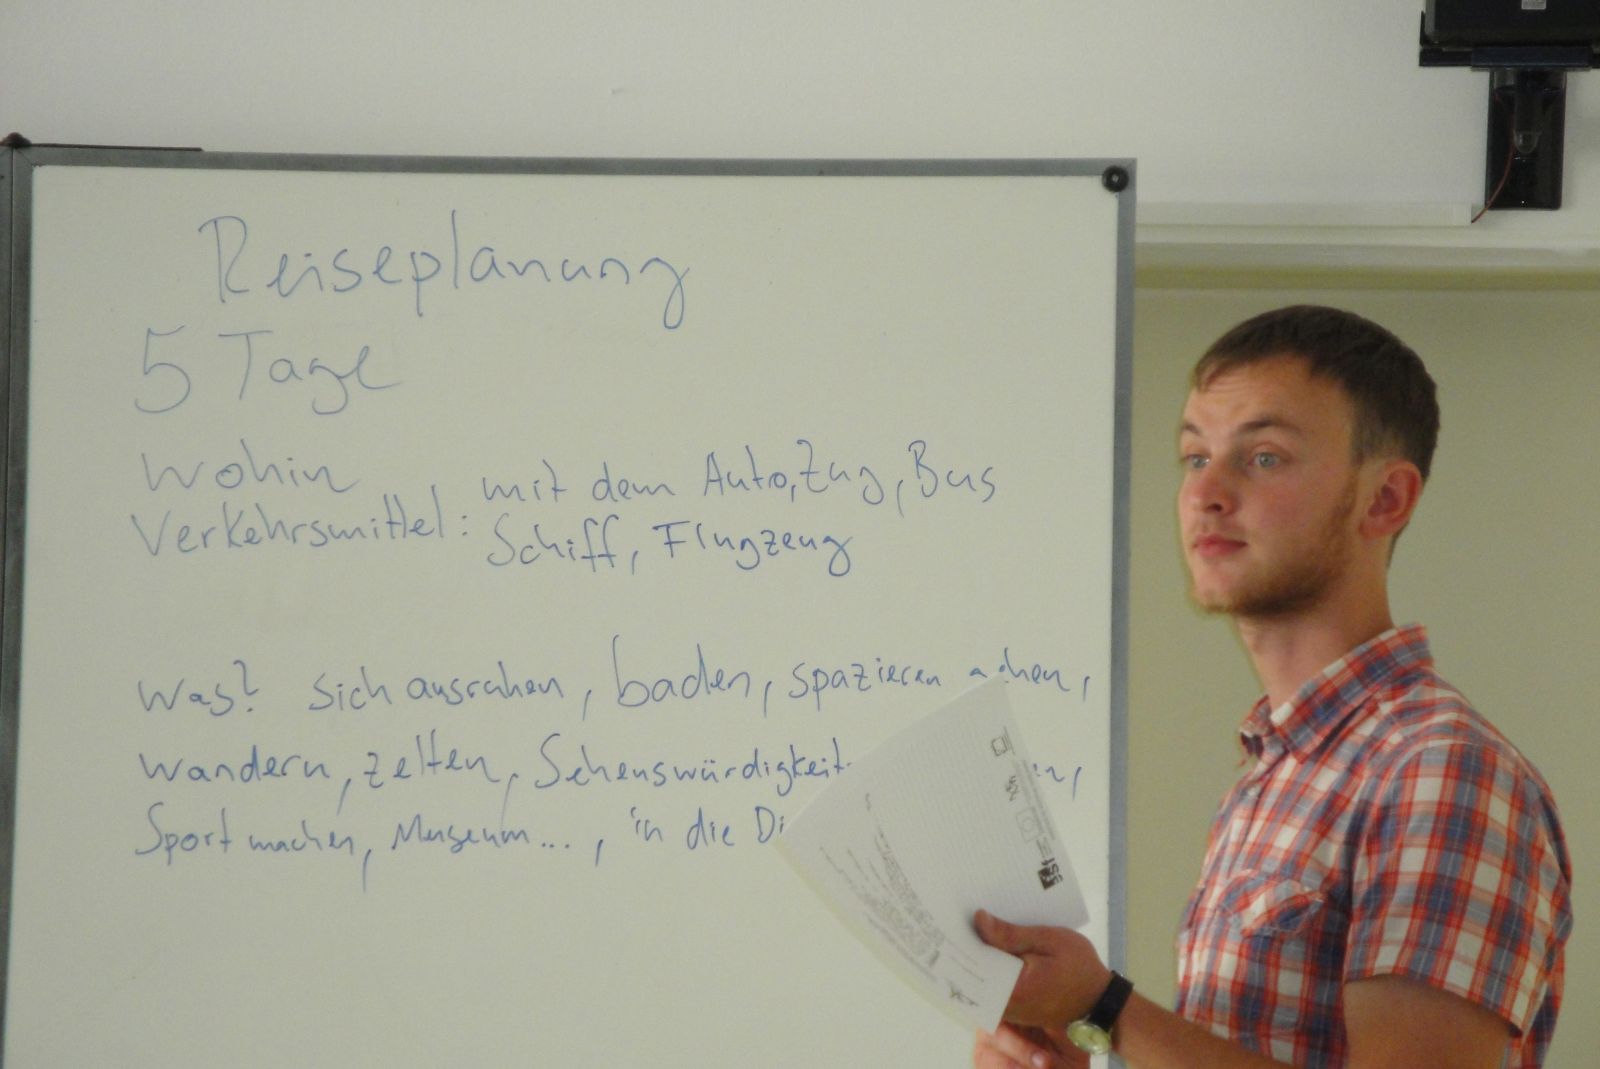 Reiseplanung
5 Tage
wohin
Verkehrsmittel: mit dem Auto, Zug, Bus
Schiff, Flugzeug
Was? sich ausruhen, baden, spazieren
wandern, zelten, Sehenswürdigkeit
Sport machen, Museum..., in die Di
esf